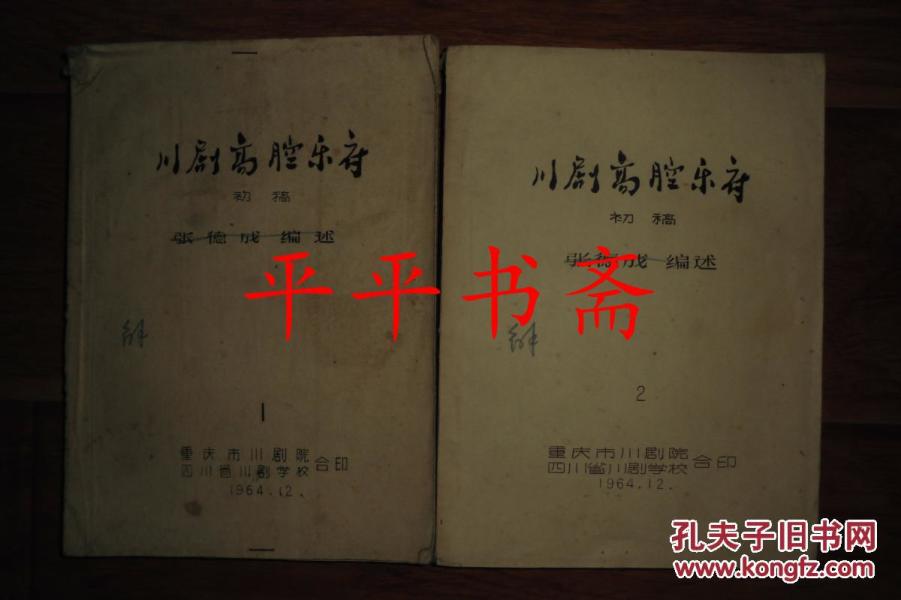 川剧高腔乐府
初稿
张德成 编述
1
重庆市川剧院
四川省川剧学校
合印
1964.12.
川剧高腔乐府
初稿
张德成 编述
2
重庆市川剧院
四川省川剧学校
合印
1964.12.
平平书斋
孔夫子旧书网
www.kongfz.com